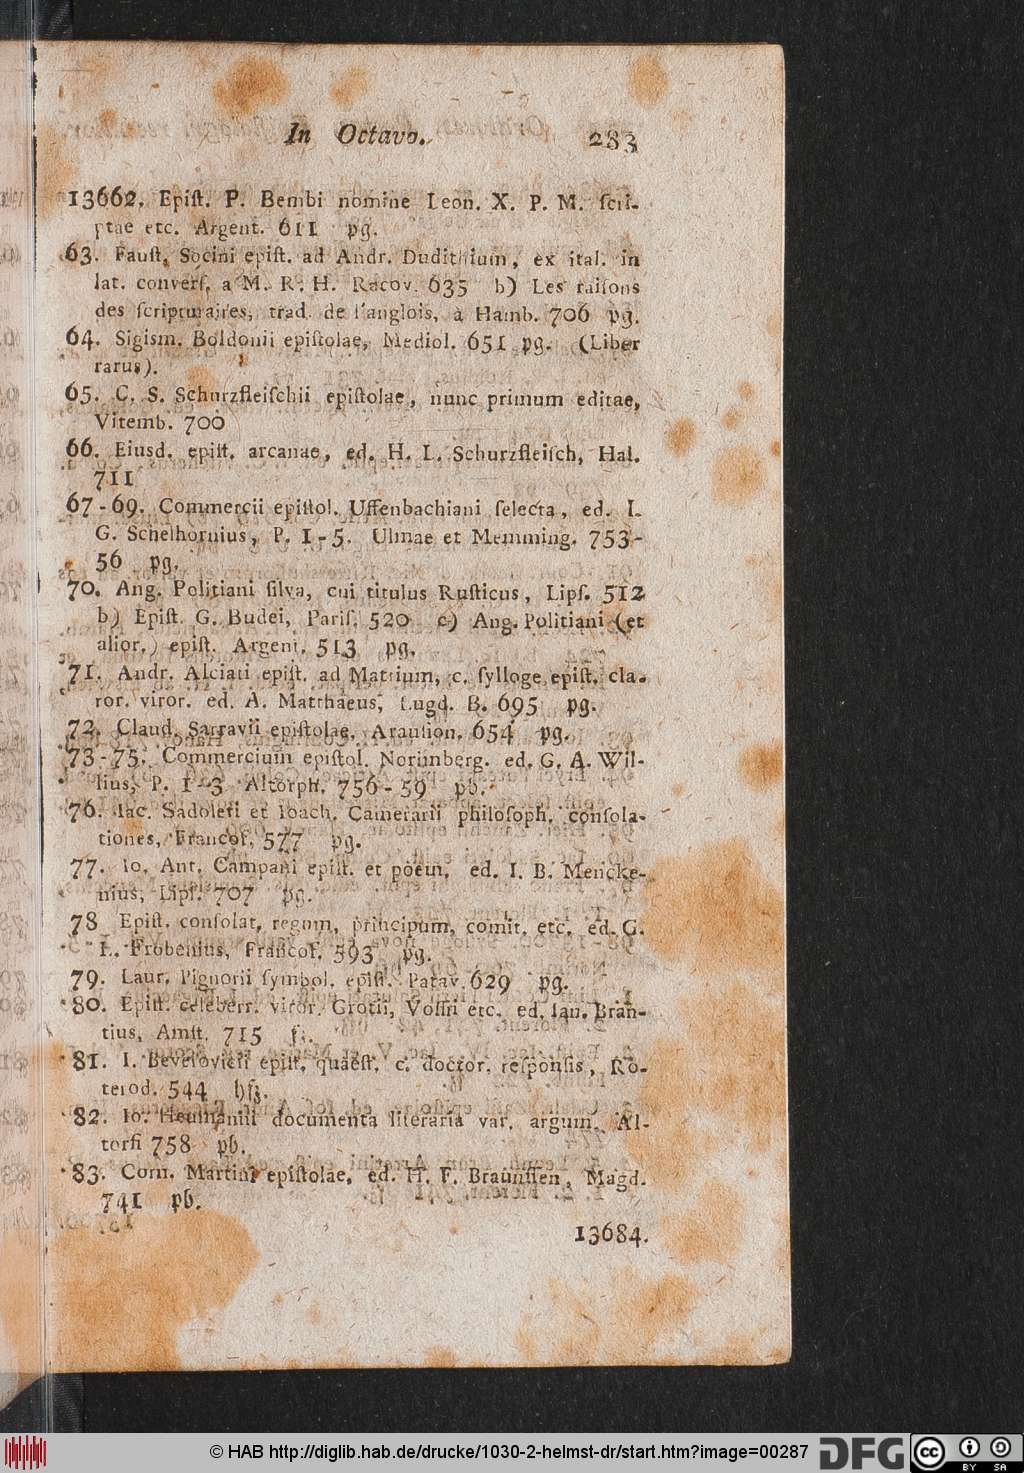 In Octavo. 283
13662. Epiſt. P. Bembi nomine Leon. X. P. M. ſcri-
ptae etc. Argent. 611 pg.
63. Fauſt. Socini epiſt. ad Andr. Dudithium, ex ital. in
lat. converſ. a M. R. H. Racov. 635 b) Les raiſons
des ſcripturaires, trad. de l'anglois, à Hamb. 706 pg.
64. Sigism. Boldonii epiſtolae, Mediol. 651 pg. (Liber
rarus).
65. C. S. Schurzfleiſchii epiſtolae, nunc primum editae,
Vitemb. 700
66. Eiusd. epiſt. arcanae, ed. H. L. Schurzfleiſch, Hal.
711
67-69. Commercii epiſtol. Uffenbachiani ſelecta, ed. I.
G. Schelhornius, P. 1-5. Ulmae et Memming. 753-
56 pg.
70. Ang. Politiani ſilva, cui titulus Ruſticus, Lipſ. 512
b) Epiſt. G. Budei, Pariſ. 520 c) Ang. Politiani (et
alior.) epiſt. Argent. 513 pg.
71. Andr. Alciati epiſt. ad Mattium, c. ſylloge epiſt. cla-
ror. viror. ed. A. Matthaeus, Lugd. B. 695 pg.
72. Claud. Sarravii epiſtolae, Arauſion. 654 pg.
73-75. Commercium epiſtol. Norimberg. ed. G. A. Wil-
lius, P. 1-3 Altorph. 756-59 pb.
76. Iac. Sadoleti et Ioach. Camerarii philoſoph. conſola-
tiones, Francof. 577 pg.
77. Io. Ant. Campani epiſt. et poëm. ed. I. B. Mencke-
nius, Lipſ. 707 pg.
78 Epiſt. conſolat. regum, principum, comit. etc. ed. G.
L. Frobenius, Francof. 593 pg.
79. Laur. Pignorii ſymbol. epiſt. Patav. 629 pg.
80. Epiſt. celeberr. viror. Grotii, Voſſii etc. ed. Ian. Bran-
tius, Amſt. 715 fz.
81. I. Beverovicii epiſt. quaeſt. c. doctor. reſponſis, Ro-
terod. 544 hfz.
82. Io. Heumannii documenta literaria var. argum. Al-
torfi 758 pb.
83. Corn. Martini epiſtolae, ed. H. F. Braunſſen, Magd.
741 pb.
13684.
© HAB http://diglib.hab.de/drucke/1030-2-helmst-dr/start.htm?image=00287 DFG cc BY SA